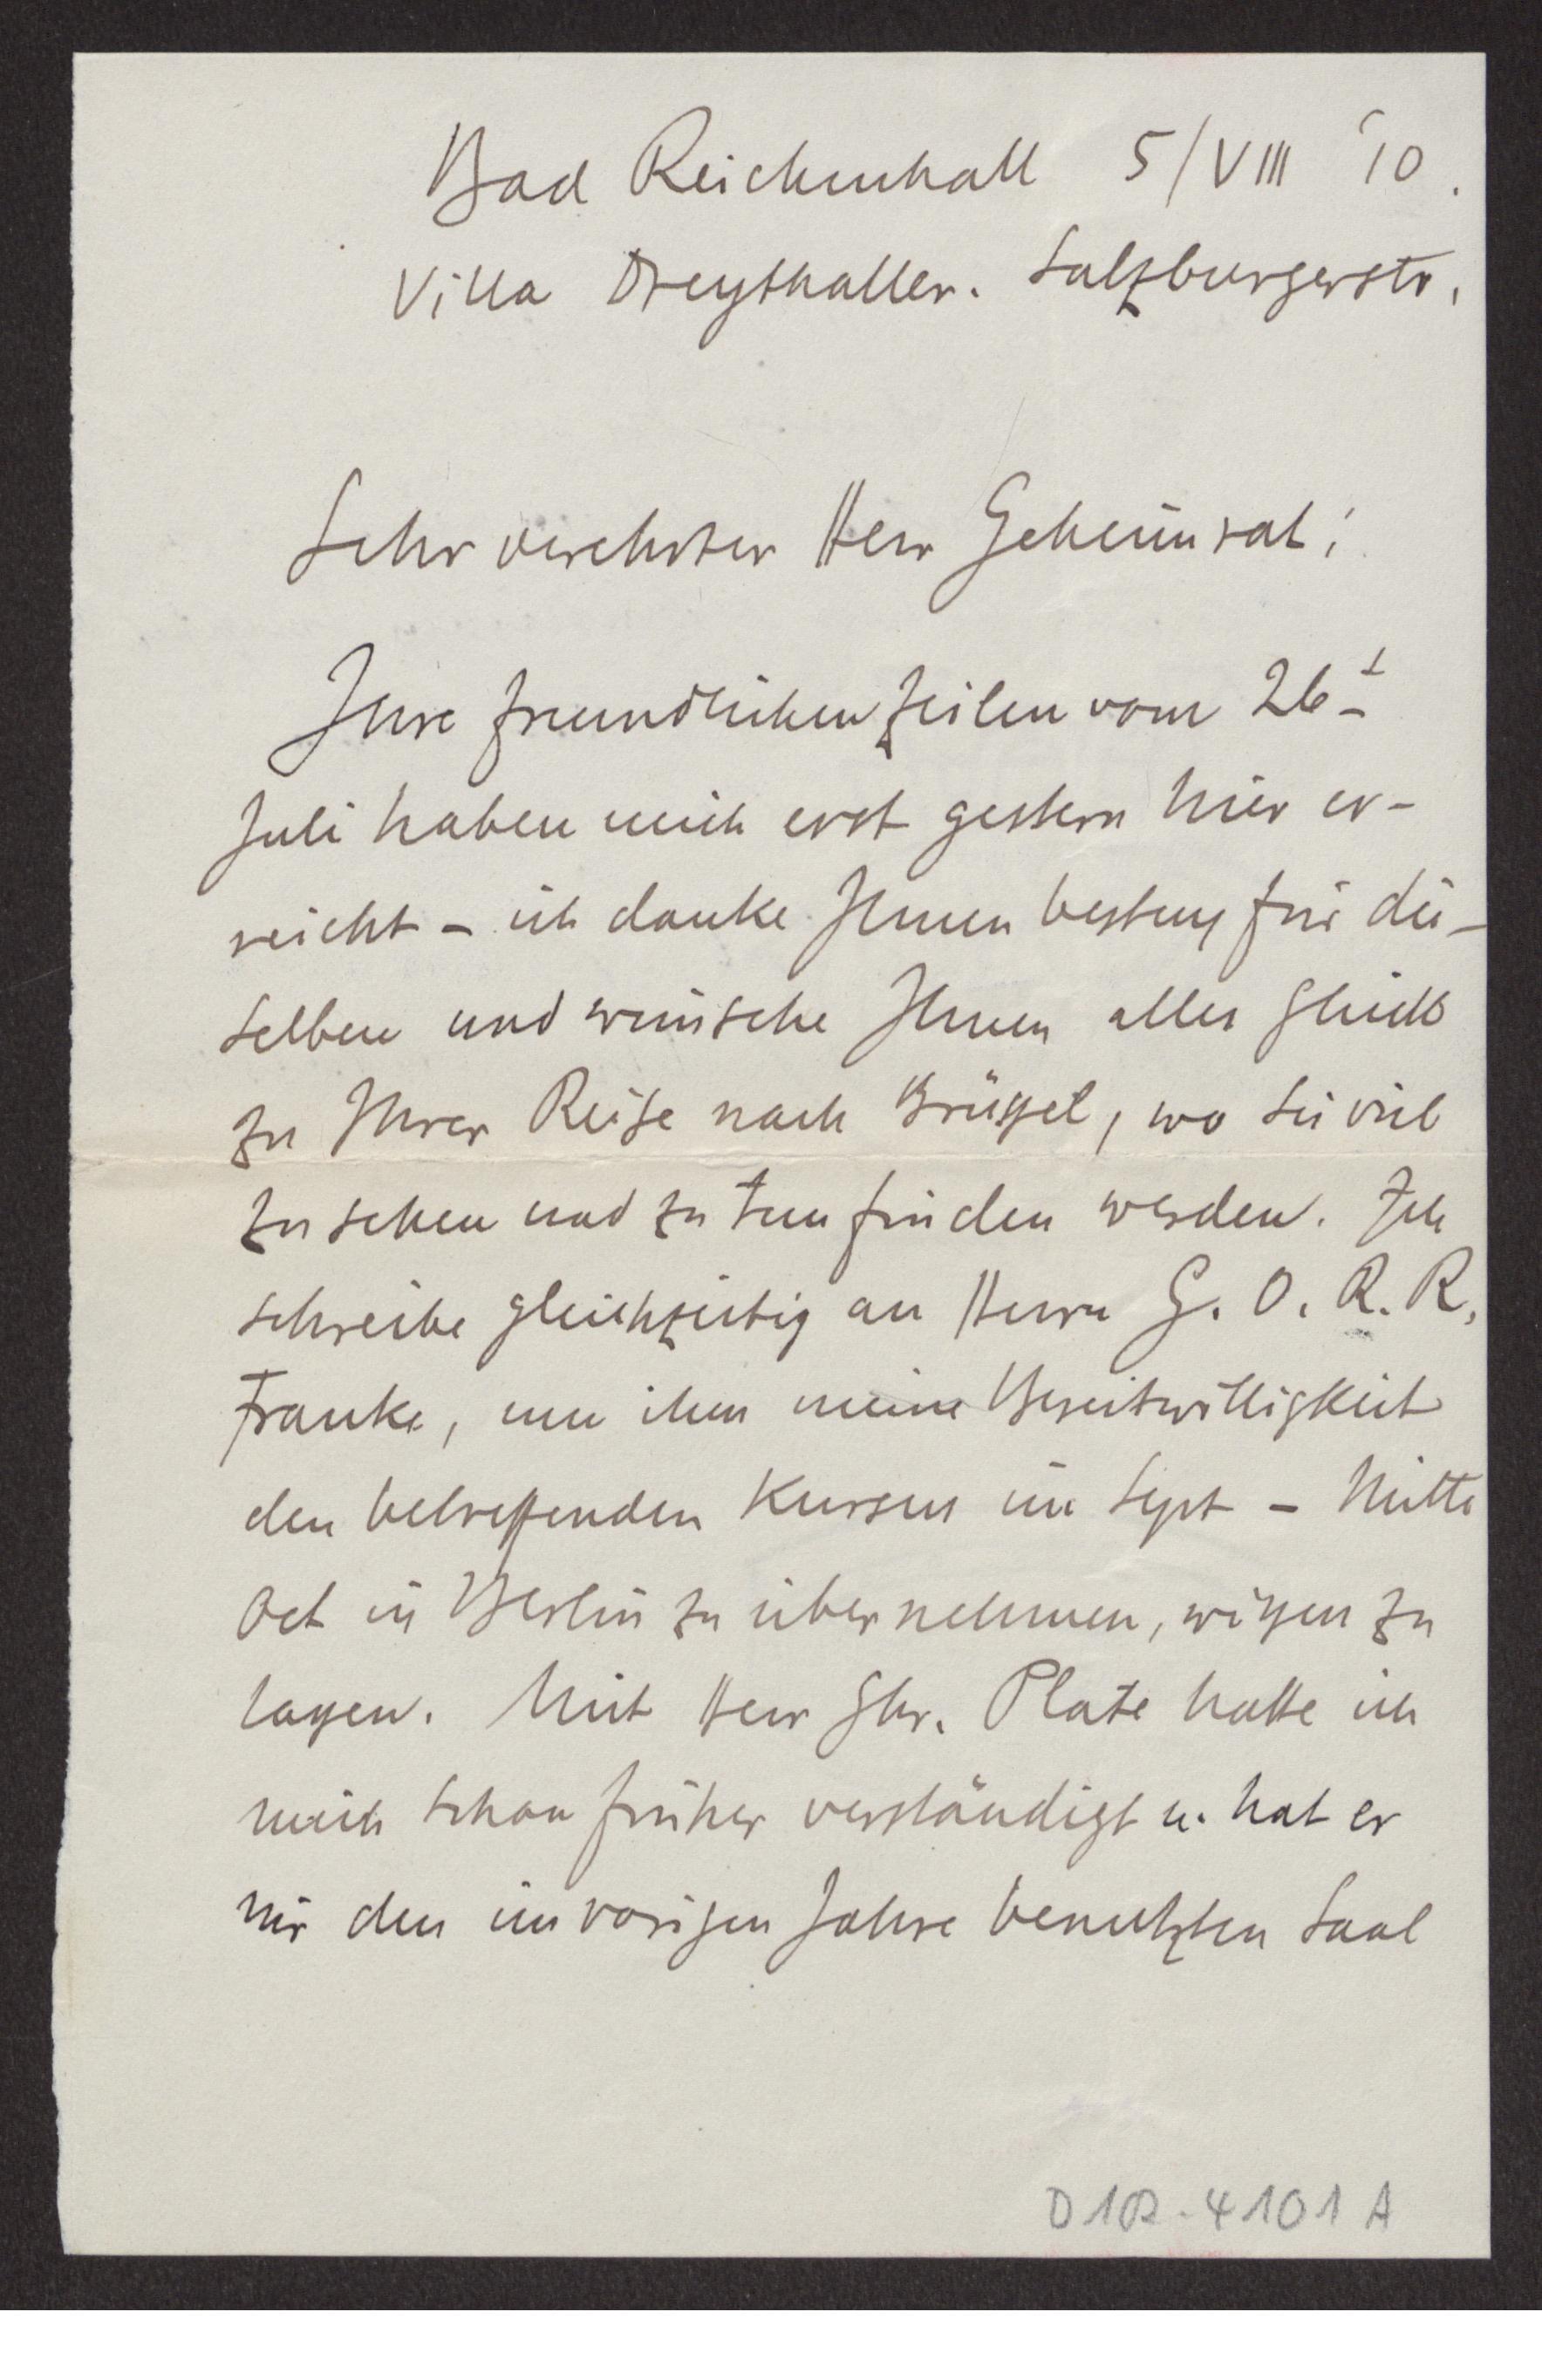 Bad Reichenhall 5/VIII '10.
Villa Dreythaller. Salzburgerstr.
Sehr verehrter Herr Geheimrat!
Ihre freundlichen Zeilen vom 26t
Juli haben mich erst gestern hier er-
reicht – ich danke Ihnen bestens für die-
selben und wünsche Ihnen alles Glück
zu Ihrer Reise nach Brüssel, wo Sie viel
zu sehen und zu tun finden werden. Ich
schreibe gleichzeitig an Herrn G. O. R. R.
Franke, um ihm meine Bereitwilligkeit
den betreffenden Kursus im Sept – Mitte
Oct in Berlin zu übernehmen, wissen zu
lassen. Mit Herr Ghr. Plate hatte ich
mich schon früher verständigt u. hat er
mir den im vorigen Jahre benutzten Saal
D1R-4101 A